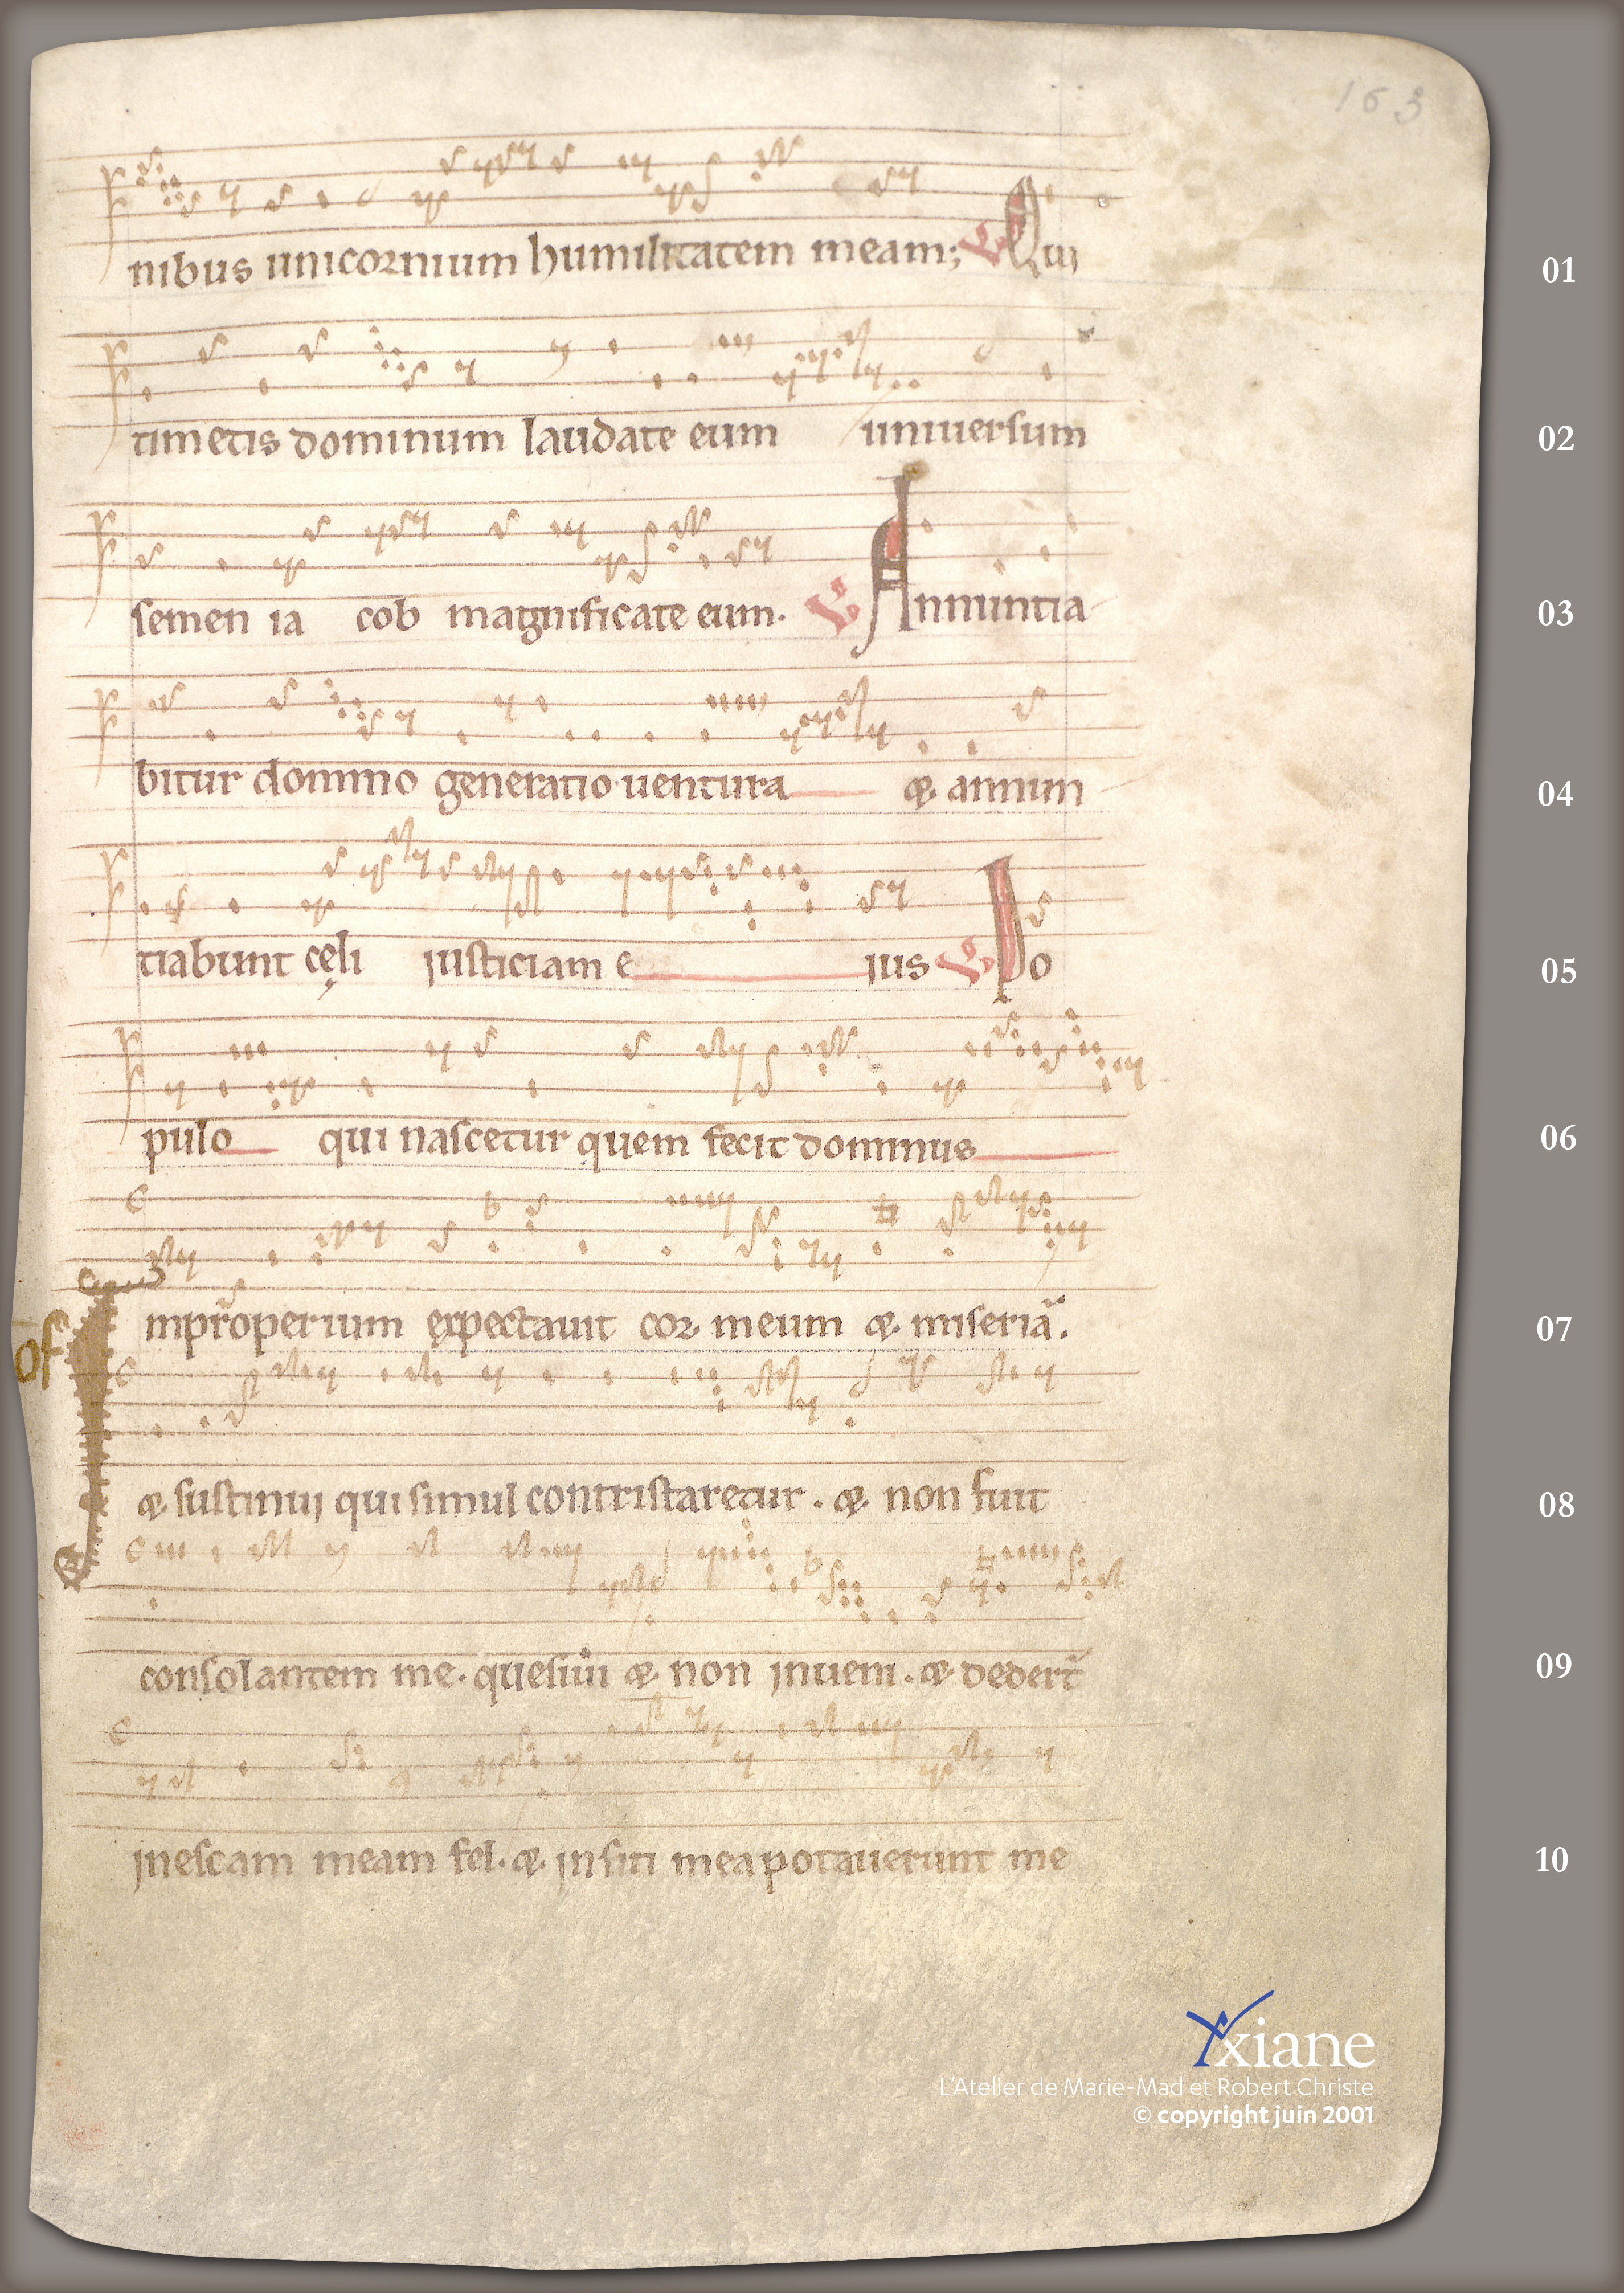 163
nibus unicornium humilitatem meam; V Qui
01
timetis dominum laudate eum universum
02
semen ia cob magnificate eum. V Annuntia
03
bitur domino generatio ventura & annun
04
tiabunt cęli justiciam e jus V Po
05
pulo qui nascetur quem fecit dominus
06
of Improperium expectavit cor meum & miseriā.
07
& sustinui qui simul contristaretur . & non fuit
08
consolantem me. quesivi & non inveni . & dedert̄
09
inescam meam fel. & insiti mea potaverunt me
10
Axiane
L'Atelier de Marie-Mad et Robert Christe
© copyright juin 2001